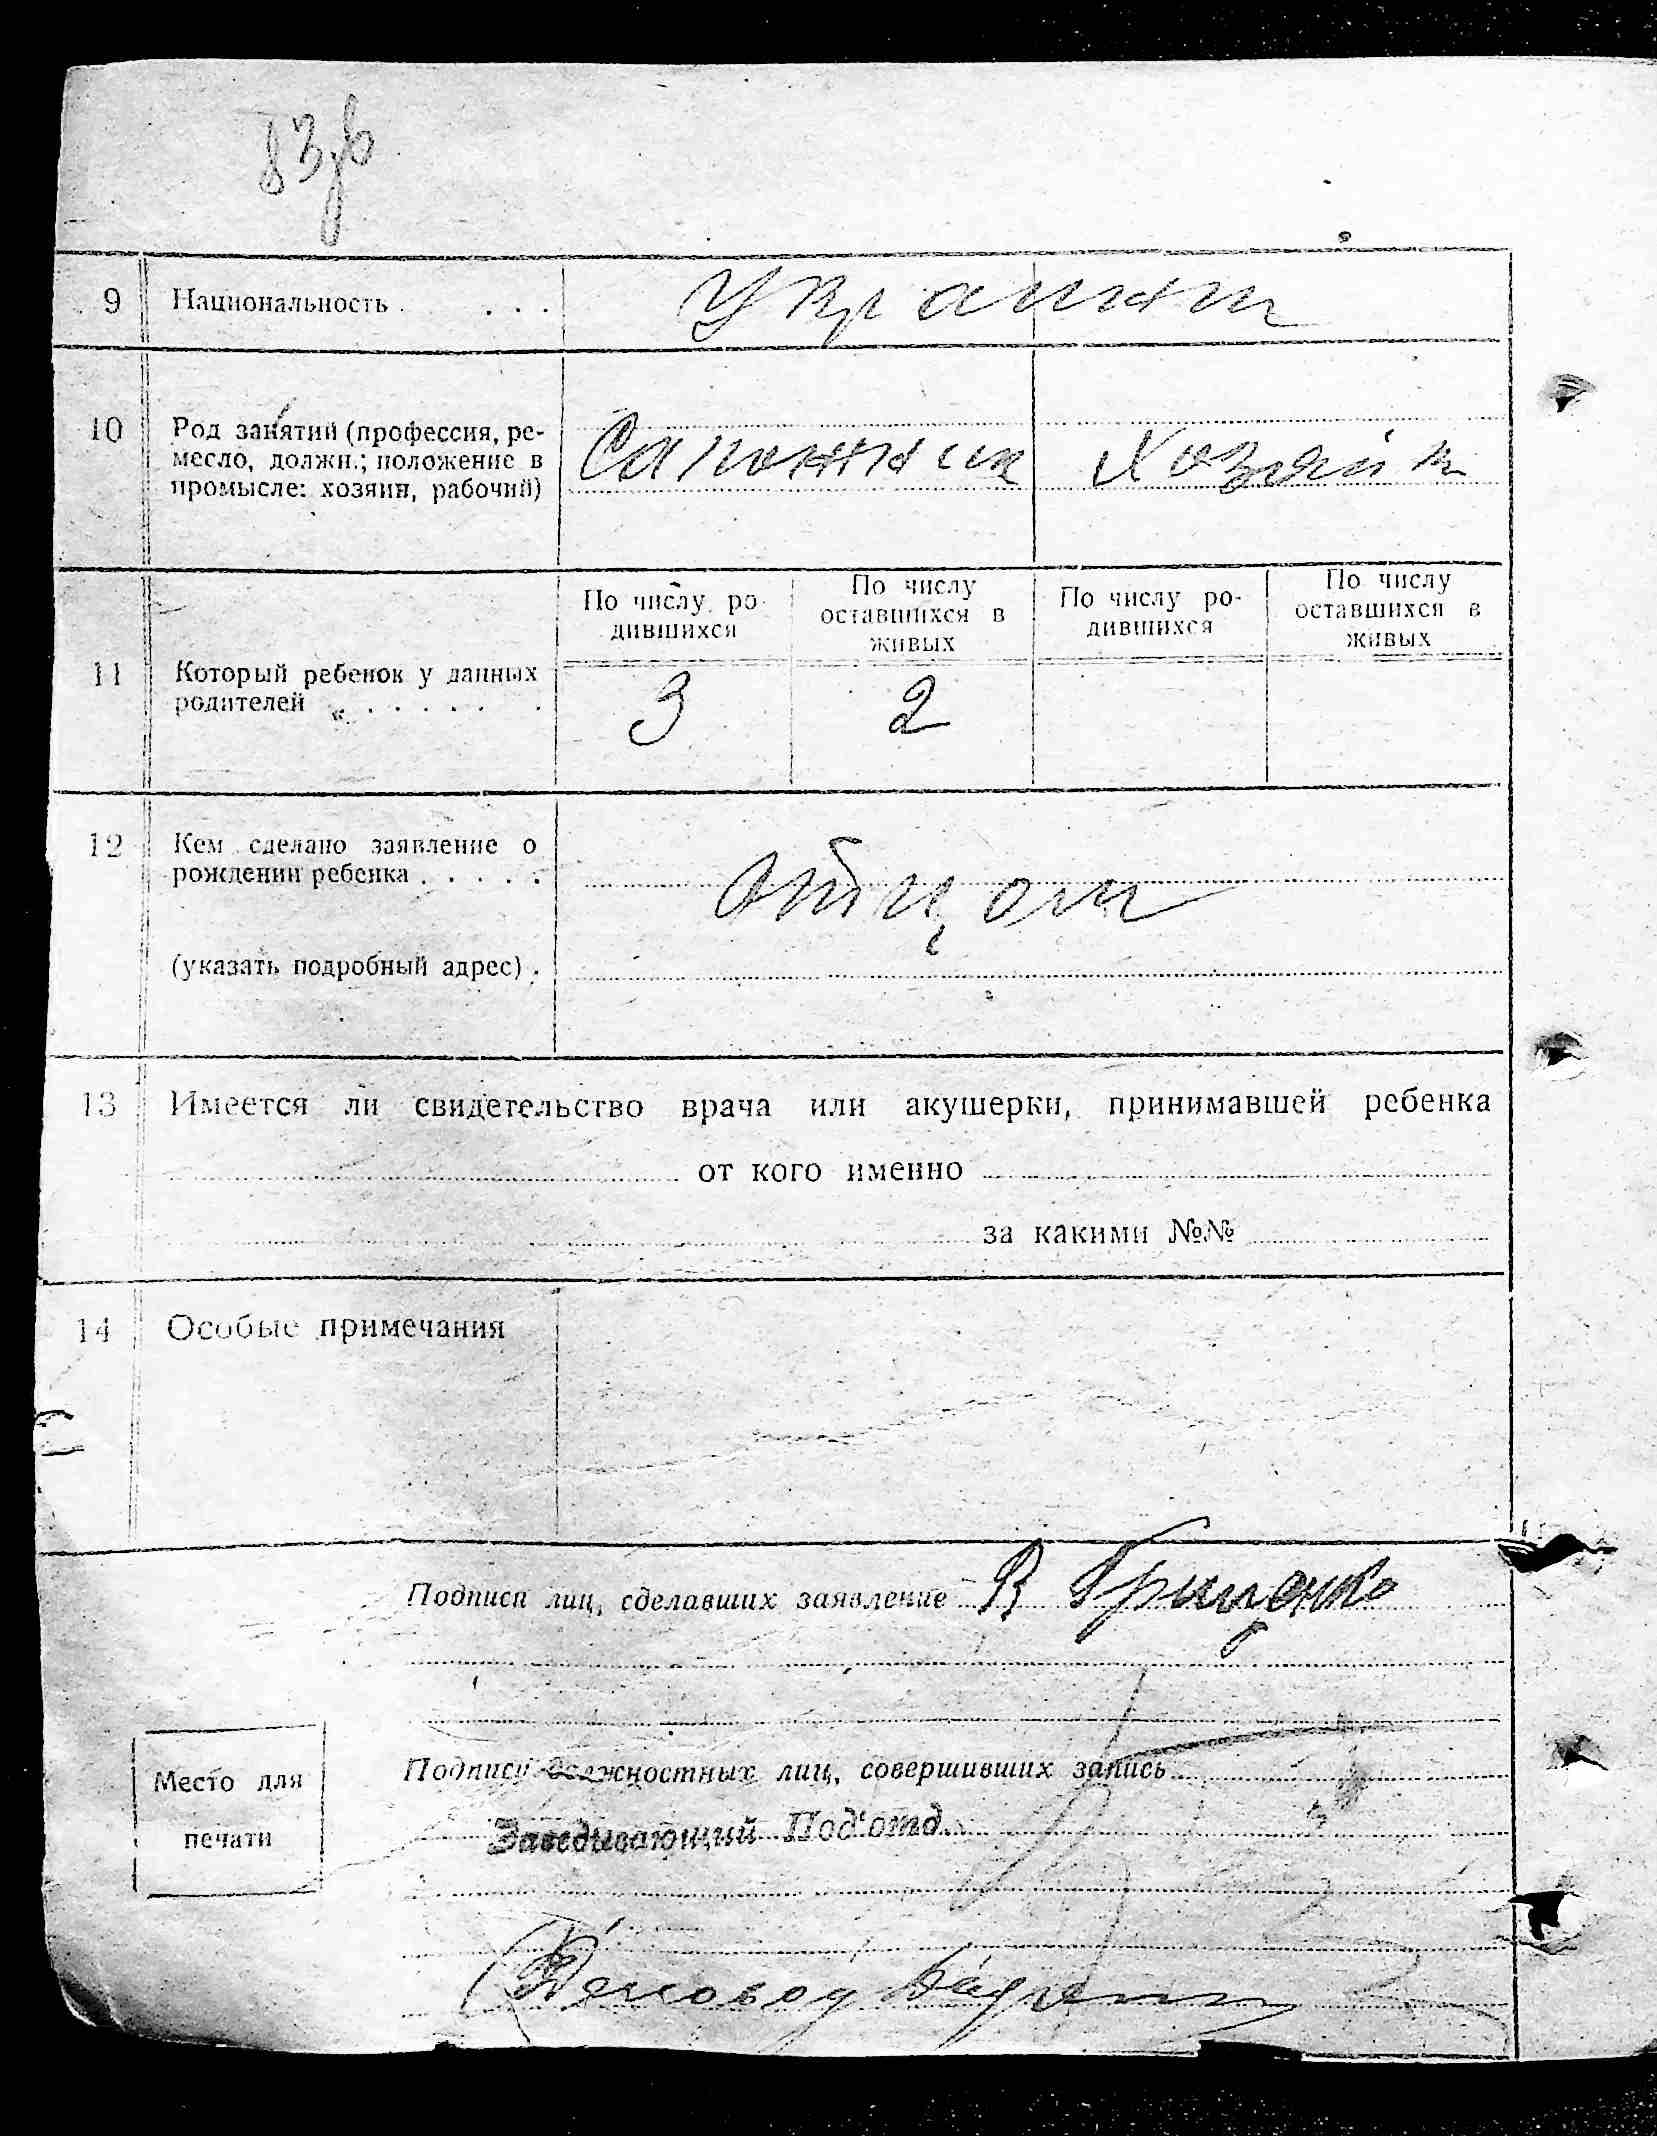 83
9 Национальность . . . . Украин
10 Род занятий (профессия, ре-
месло, должн.; положение в
промысле: хозяин, рабочий)
Сапожник Хозяин
По числу ро-
дившихся
По числу
оставшихся в
живых
По числу ро-
дившихся
По числу
оставшихся в
живых
11 Который ребенок у данных
родителей „ . . . . . .
3 2
12 Кем сделано заявление о
рождении ребенка . . . . .
отцом
(указать подробный адрес) .
13 Имеется ли свидетельство врача или акушерки, принимавшей ребенка
от кого именно
за какими №№
14 Особые примечания
Подписи лиц, сделавших заявление В Грищенко
Подписи должностных лиц, совершивших запись
Место для
печати
Заведывающий Под'отд.
Деловод